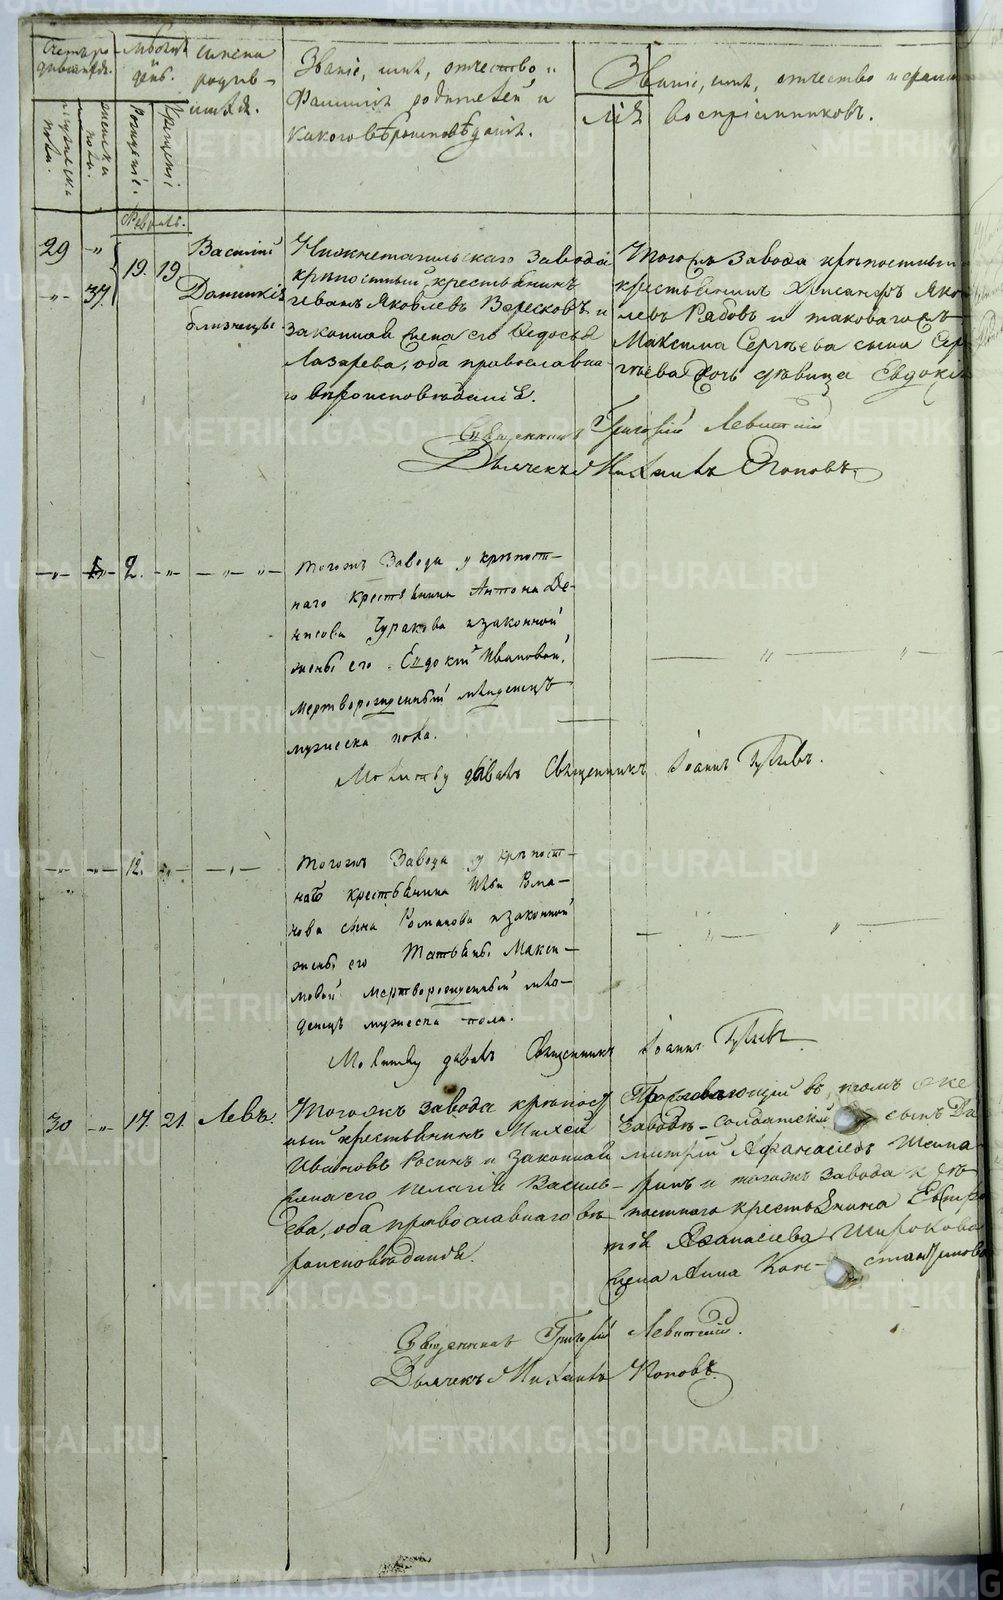 Имена
родив-
шихся.
Званіе, имя, отчество и
фамилія родителей и
какого вѣроисповѣданія.
Званіе, имя, отчество и фами
лія воспріемниковъ.
мужеска пола.
женска пола.
Рожденіе.
Крещеніе
Февраль.
29 -"-
-"- 37.
19. 19
Василий
Домникія
близнецы
Нижнетагильскаго завода
крѣпостный крестьянинъ
Иванъ Яковлевъ и
законная жена его Ѳедосья
Лазарева, оба православна
го вѣроисповѣданія.
Тогожъ завода крѣпостный
крестьянинъ Хрисанфъ Яко
левъ Рябовъ и таковагожъ
Максима Сергѣева сына Сер
гѣева дочь дѣвица Евдокія
Священникъ Григорій Левитскій
Дьячекъ Михаилъ Поповъ
-"- 2. -"- -"- -"-
тогожъ Завода у крѣпост-
наго крестьянина Антона Де-
нисова Чуракова и законной
жены его Евдокіи Ивановой,
мертворожденный младенецъ
мужеска пола.
Молитву давалъ Священникъ Іоаннъ
-"- -"- 12. -"- -"-
тогожъ Завода у крѣпост-
наго крестьянина Ильи Рома-
нова сына Романова и законной
жены его Татьяны Макси-
мовой мертворожденный мла-
денецъ мужеска пола.
Молитву давалъ Священникъ Іоаннъ
30 -"- 17. 21. Левъ.
Тогожъ завода крѣпост
ный крестьянинъ
Ивановъ Росинъ и законная
жена его Пелагія Василь-
ева, оба православнаго вѣ
роисповѣданія.
Торговающій въ томъ же
заводѣ солдатскій сынъ Ди
митрій Афанасіевъ
и тогожъ завода крѣ
постнаго крестьянина
Афанасіева Широкова
жена Анна Конс-стантинова
Священникъ Григорій Левитскій.
Дьячекъ Михаилъ Поповъ.
METRIKI.GASO-URAL.RU